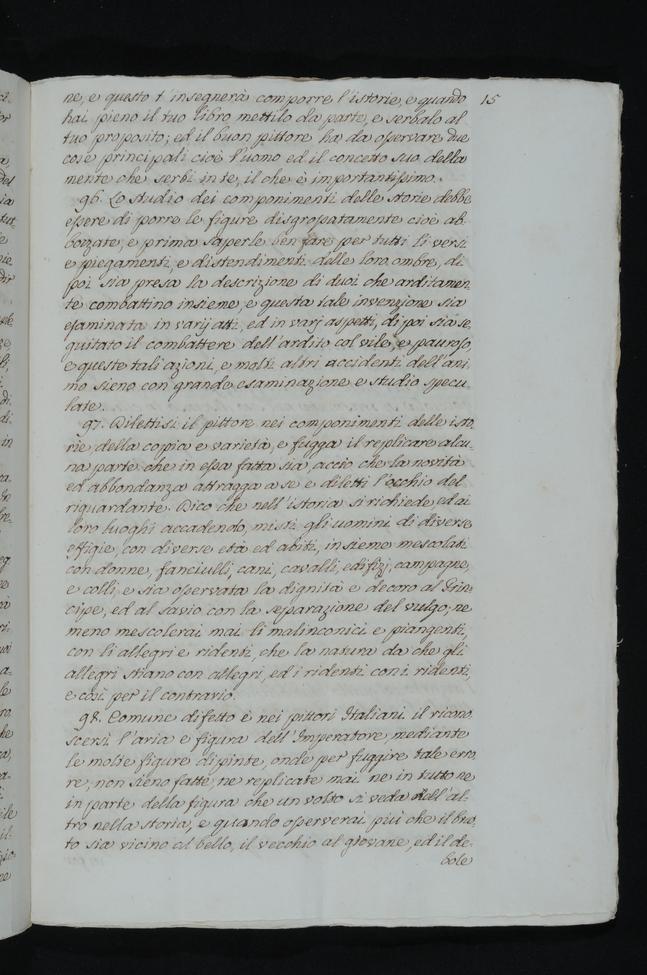 ne, e questo t' insegnerà comporre l'istorie, e quando 15
hai pieno il tuo libro, mettilo da parte, e serbalo al
tuo proposito; ed il buon pittore ha da osservare due
cose principali cioè l'uomo ed il concetto suo della
mente che serbi in te, il che è importantissimo.
96. Lo studio dei componimenti delle storie debbe
essere di porre le figure disgropatamente cioè ab-
bozzate, e prima saperle ben fare per tutti li versi
e piegamenti, e distendimenti delle loro ombre, di
poi sia presa la descrizione di duoi che arditamen
te combattino insieme, e questa tale invenzione sia
esaminata in varj atti, ed in varj aspetti, di poi sia se,
guitato il combattere dell'ardito col vile, e pauroso,
e queste tali azioni, e molti altri accidenti dell'ani,
mo sieno con grande esaminazione e studio specu
late.
97. Dilettisi il pittore nei componimenti delle isto,
rie, della copia e varietà, e fugga il replicare alcu-
na parte che in essa fatta sia, acciò che la novità
ed abbondanza attragga a se e diletti l'occhio del
riguardante. Dico che nell'istoria si richiede ed ai
loro luoghi accadendo, misti gli uomini di diverse
effigie, con diverse età ed abiti, insieme mescolati
con donne, fanciulli, cani, cavalli, edifizj, campagne,
e colli, e sia osservata la dignità e decoro al Prin,
cipe, ed al savio con la separazione del vulgo; ne
meno mescolerai mai li malinconici e piangenti,
con li allegri e ridenti, che la natura da che gli
allegri stiano con allegri, ed i ridenti con i ridenti,
e così per il contrario.
98. Comune difetto è nei pittori Italiani il ricono,
scersi l'aria e figura dell'Imperatore mediante
le molte figure dipinte, onde per fuggire tale erro,
re, non sieno fatte, ne replicate mai ne in tutto ne
in parte della figura che un volto si veda nell'al-
tro nella storia, e quando osserverai più che il bru,
to sia vicino al bello, il vecchio al giovane, ed il de-
bole